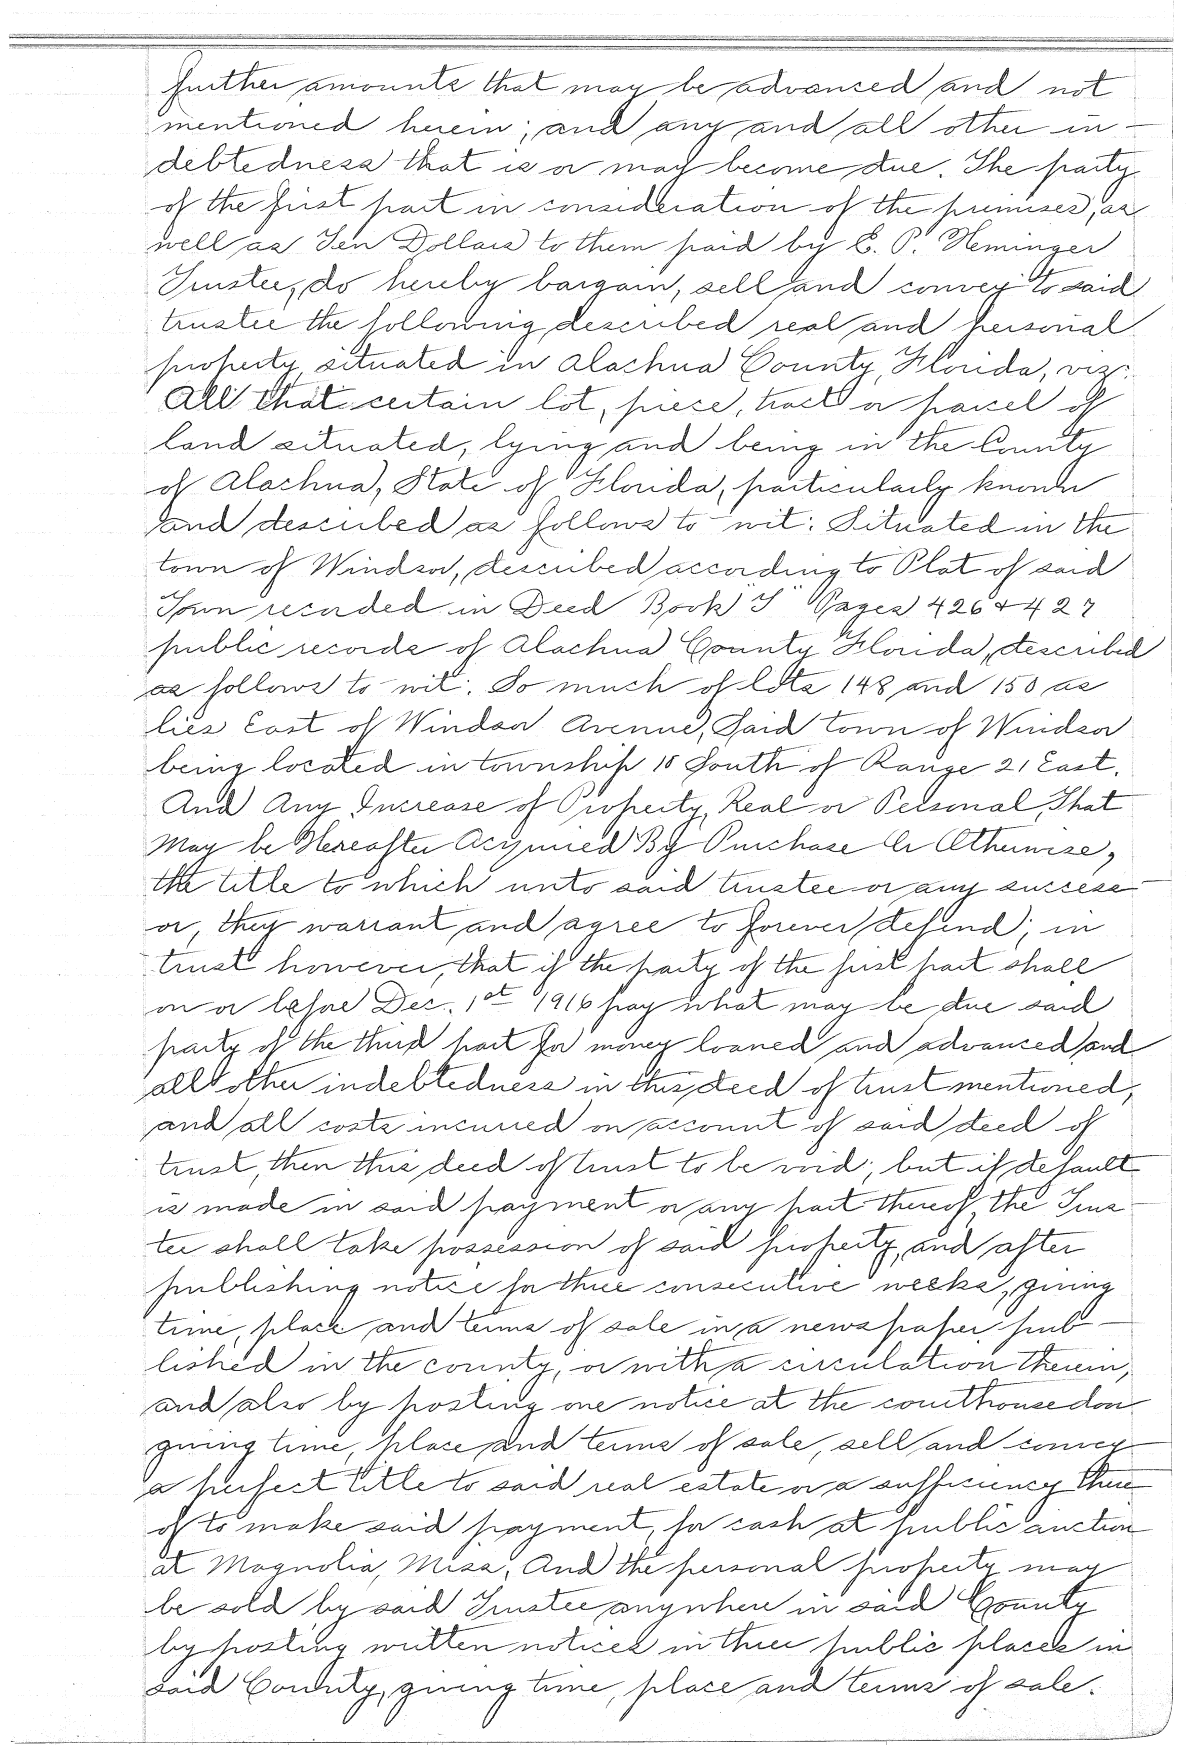 further amounts that may be advanced and not
mentioned herein; and any and all other in-
debtedness that is or may become due. The party
of the first part in consideration of the premises, as
well as Ten Dollars to them paid by E. P. Heminger
Trustee, do hereby bargain, sell and convey to said
trustee the following described real and personal
property, situated in Alachua County, Florida, viz:
All that certain lot, piece, tract or parcel of
land situated, lying and being in the County
of Alachua, State of Florida, particularly known
and described as follows to-wit: Situated in the
town of Windsor, described according to Plat of said
Town recorded in Deed Book "I" Pages 426 & 427
public records of Alachua County Florida, described
as follows to wit: So much of lots 148 and 150 as
lies East of Windsor Avenue, Said town of Windsor
being located in township 10 South of Range 21 East.
And Any Increase of Property, Real or Personal, That
May be Hereafter Acquired By Purchase Or Otherwise,
the title to which unto said trustee or any success-
or, they warrant and agree to forever defend; in
trust however, that if the party of the first part shall
on or before Dec. 1st 1916 pay what may be due said
party of the third part for money loaned and advanced and
all other indebtedness in this deed of trust mentioned,
and all costs incurred on account of said deed of
trust, then this deed of trust to be void; but if default
is made in said payment or any part thereof, the Trus-
tee shall take possession of said property, and after
publishing notice for three consecutive weeks, giving
time, place and terms of sale in a newspaper pub-
lished in the county, or with a circulation therein,
and also by posting one notice at the courthouse door
giving time, place and terms of sale, sell and convey
a perfect title to said real estate or a sufficiency there
of to make said payment, for cash at public auction
at Magnolia, Miss. And the personal property may
be sold by said Trustee anywhere in said County
by posting written notices in three public places in
said County, giving time, place and terms of sale.